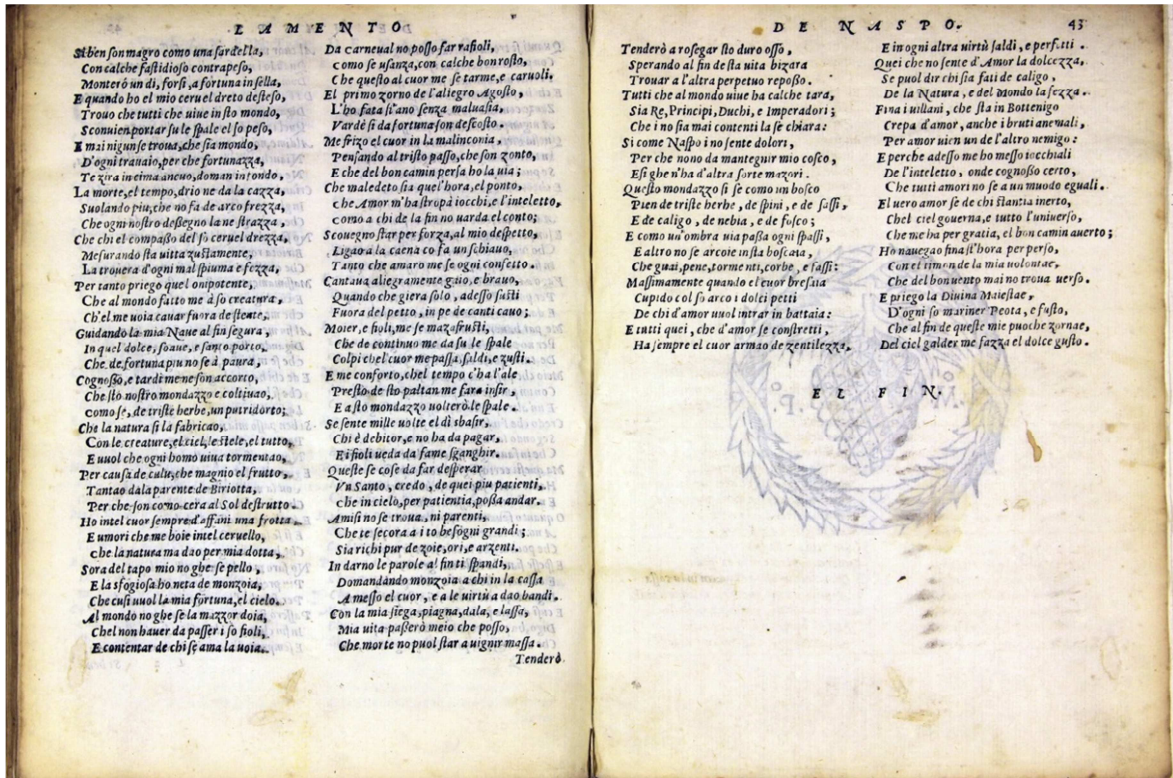 LAMENTO
Siben son magro como una sardella,
Con calche fastidioso contrapeso,
Monterò un dì, forsi, a fortuna in sella,
E quando ho el mio ceruel dreto desteso,
Trouo che tutti che uiue in sto mondo,
Sconuien portar su le spale el so peso,
E mai nigun se troua, che sia mondo,
D'ogni trauaio, per che fortunazza,
Te zira in cima ancuo, doman in fondo.
La morte, el tempo, drio ne da la cazza,
Suolando piu, che no fa de arco frezza,
Che ogni nostro dessegno la ne strazza,
Che chi el compasso del so ceruel drezza,
Mesurando sta uitta zustamente,
La trouera d'ogni mal spiuma e fezza,
Per tanto priego quel onipotente,
Che al mondo fatto me à so creatura,
Ch'el me uoia cauar fuora de stente,
Guidando la mia Naue al fin segura,
In quel dolce, soaue, e santo porto,
Che de fortuna piu no se à paura,
Cognosso, e tardi me ne son accorto,
Che sto nostro mondazzo e coltiuao,
Como se, de triste herbe, un putrid orto;
Che la natura si la fabricao,
Con le creature, el ciel, le stele, el tutto,
E uuol che ogni homo uiua tormentao,
Per causa de culu, che magnio el frutto,
Tantao dala parente de Biriotta,
Per che son como cera al Sol destrutto.
Ho intel cuor sempre d'affani una frotta
E umori che me boie intel ceruello,
Che la natura ma dao per mia dotta,
Sora del tapo mio no ghe se pello,
E la sfogiosa ho neta de monzoia,
Che cusi uuol la mia fortuna, el cielo.
Al mondo no ghe se la mazzor doia,
Chel non hauer da passer i so fioli,
E contentar de chi se ama la uoia.
Da carneual no posso far rafioli,
Como se usanza, con calche bon rosto,
Che questo al cuor me se tarme, e caruoli.
El primo zorno de l'aliegro Agosto,
L'ho fata st'ano senza maluasia,
Vardè si da fortuna son descosto.
Me frizo el cuor in la malinconia,
Pensando al tristo passo, che son zonto,
E che del bon camin persa ho la uia;
Che maledeto sia quel'hora, el ponto,
Che Amor m'ha stropà i occhi, e l'inteletto,
Como a chi de la fin no uarda el conto;
Scouegno star per forza, al mio despetto,
Ligao a la caena co fa un schiauo,
Tanto che amaro me se ogni confetto.
Cantaua aliegramente gaio, e brauo,
Quando che giera solo, adesso susti
Fuora del petto, in pe de canti cauo;
Moier, e fioli, me se mazafrusti,
Che de continuo me da su le spale
Colpi chel cuor me passa, saldi, e zusti.
E me conforto, chel tempo c'ha l'ale
Presto de sto paltan me fara insir,
E a sto mondazzo uolterò le spale.
Se sente mille uolte el dì sbasir,
Chi è debitor, e no ha da pagar,
E i fioli ueda da fame sganghir.
Queste se cose da far desperar
Vn Santo, credo, de quei piu patienti,
Che in cielo, per patientia, possa andar.
Amisi no se troua, ni parenti,
Che te secora a i to besogni grandi;
Sia richi pur de zoie, ori, e arzenti.
In darno le parole al fin ti spandi,
Domandando monzoia a chi in la cassa
A messo el cuor, e a le uirtù a dao bandi.
Con la mia siega, piagna, dala, e lassa,
Mia uita passerò meio che posso,
Che morte no puol star a uignir massa.
Tenderò
DE NASPO. 43
Tenderò a rosegar sto duro osso,
Sperando al fin de sta uita bizara
Trouar a l'altra perpetuo reposso.
Tutti che al mondo uiue ha calche tara,
Sia Re, Principi, Duchi, e Imperadori;
Che i no sia mai contenti la se chiara:
Si come Naspo i no sente dolori,
Per che nono da mantegnir mio cosco,
Esi ghe n'ha d'altra sorte mazori.
Questo mondazzo si se como un bosco
Pien de triste herbe, de spini, e de sassi,
E de caligo, de nebia, e de fosco;
E como un'ombra uia passa ogni spassi,
E altro no se arcoie in sta boscata,
Che guai, pene, tormenti, corbe, e fassi:
Massimamente quando el cuor bresaia
Cupido col so arco i dolci petti
De chi d'amor uuol intrar in battaia:
E tutti quei, che d'amor se constretti,
Ha sempre el cuor armao de zentilezza,
E in ogni altra uirtù saldi, e perfetti.
Quei che no sente d'Amor la dolcezza,
Se puol dir chi sia fati de caligo,
De la Natura, e del Mondo la fezza.
Fina i uillani, che sta in Bottenigo
Crepa d'amor, anche i bruti anemali,
Per amor uien un de l'altro nemigo:
E perche adesso me ho messo iocchiali
De l'inteletto, onde cognosso certo,
Che tutti amori no se a un muodo eguali.
El uero amor se de chi stantia inerto,
Chel ciel gouerna, e tutto l'uniuerso,
Che me ha per gratia, el bon camin auerto;
Ho nauegao fina st'hora per perso,
Con el timon de la mia uolontae,
Che del bon uento mai no troua uerso.
E priego la Diuina Maiestae,
D'ogni so mariner Peota, e fusto,
Che al fin de queste mie puoche zornae,
Del ciel galder me fazza el dolce gusto.
EL FIN.